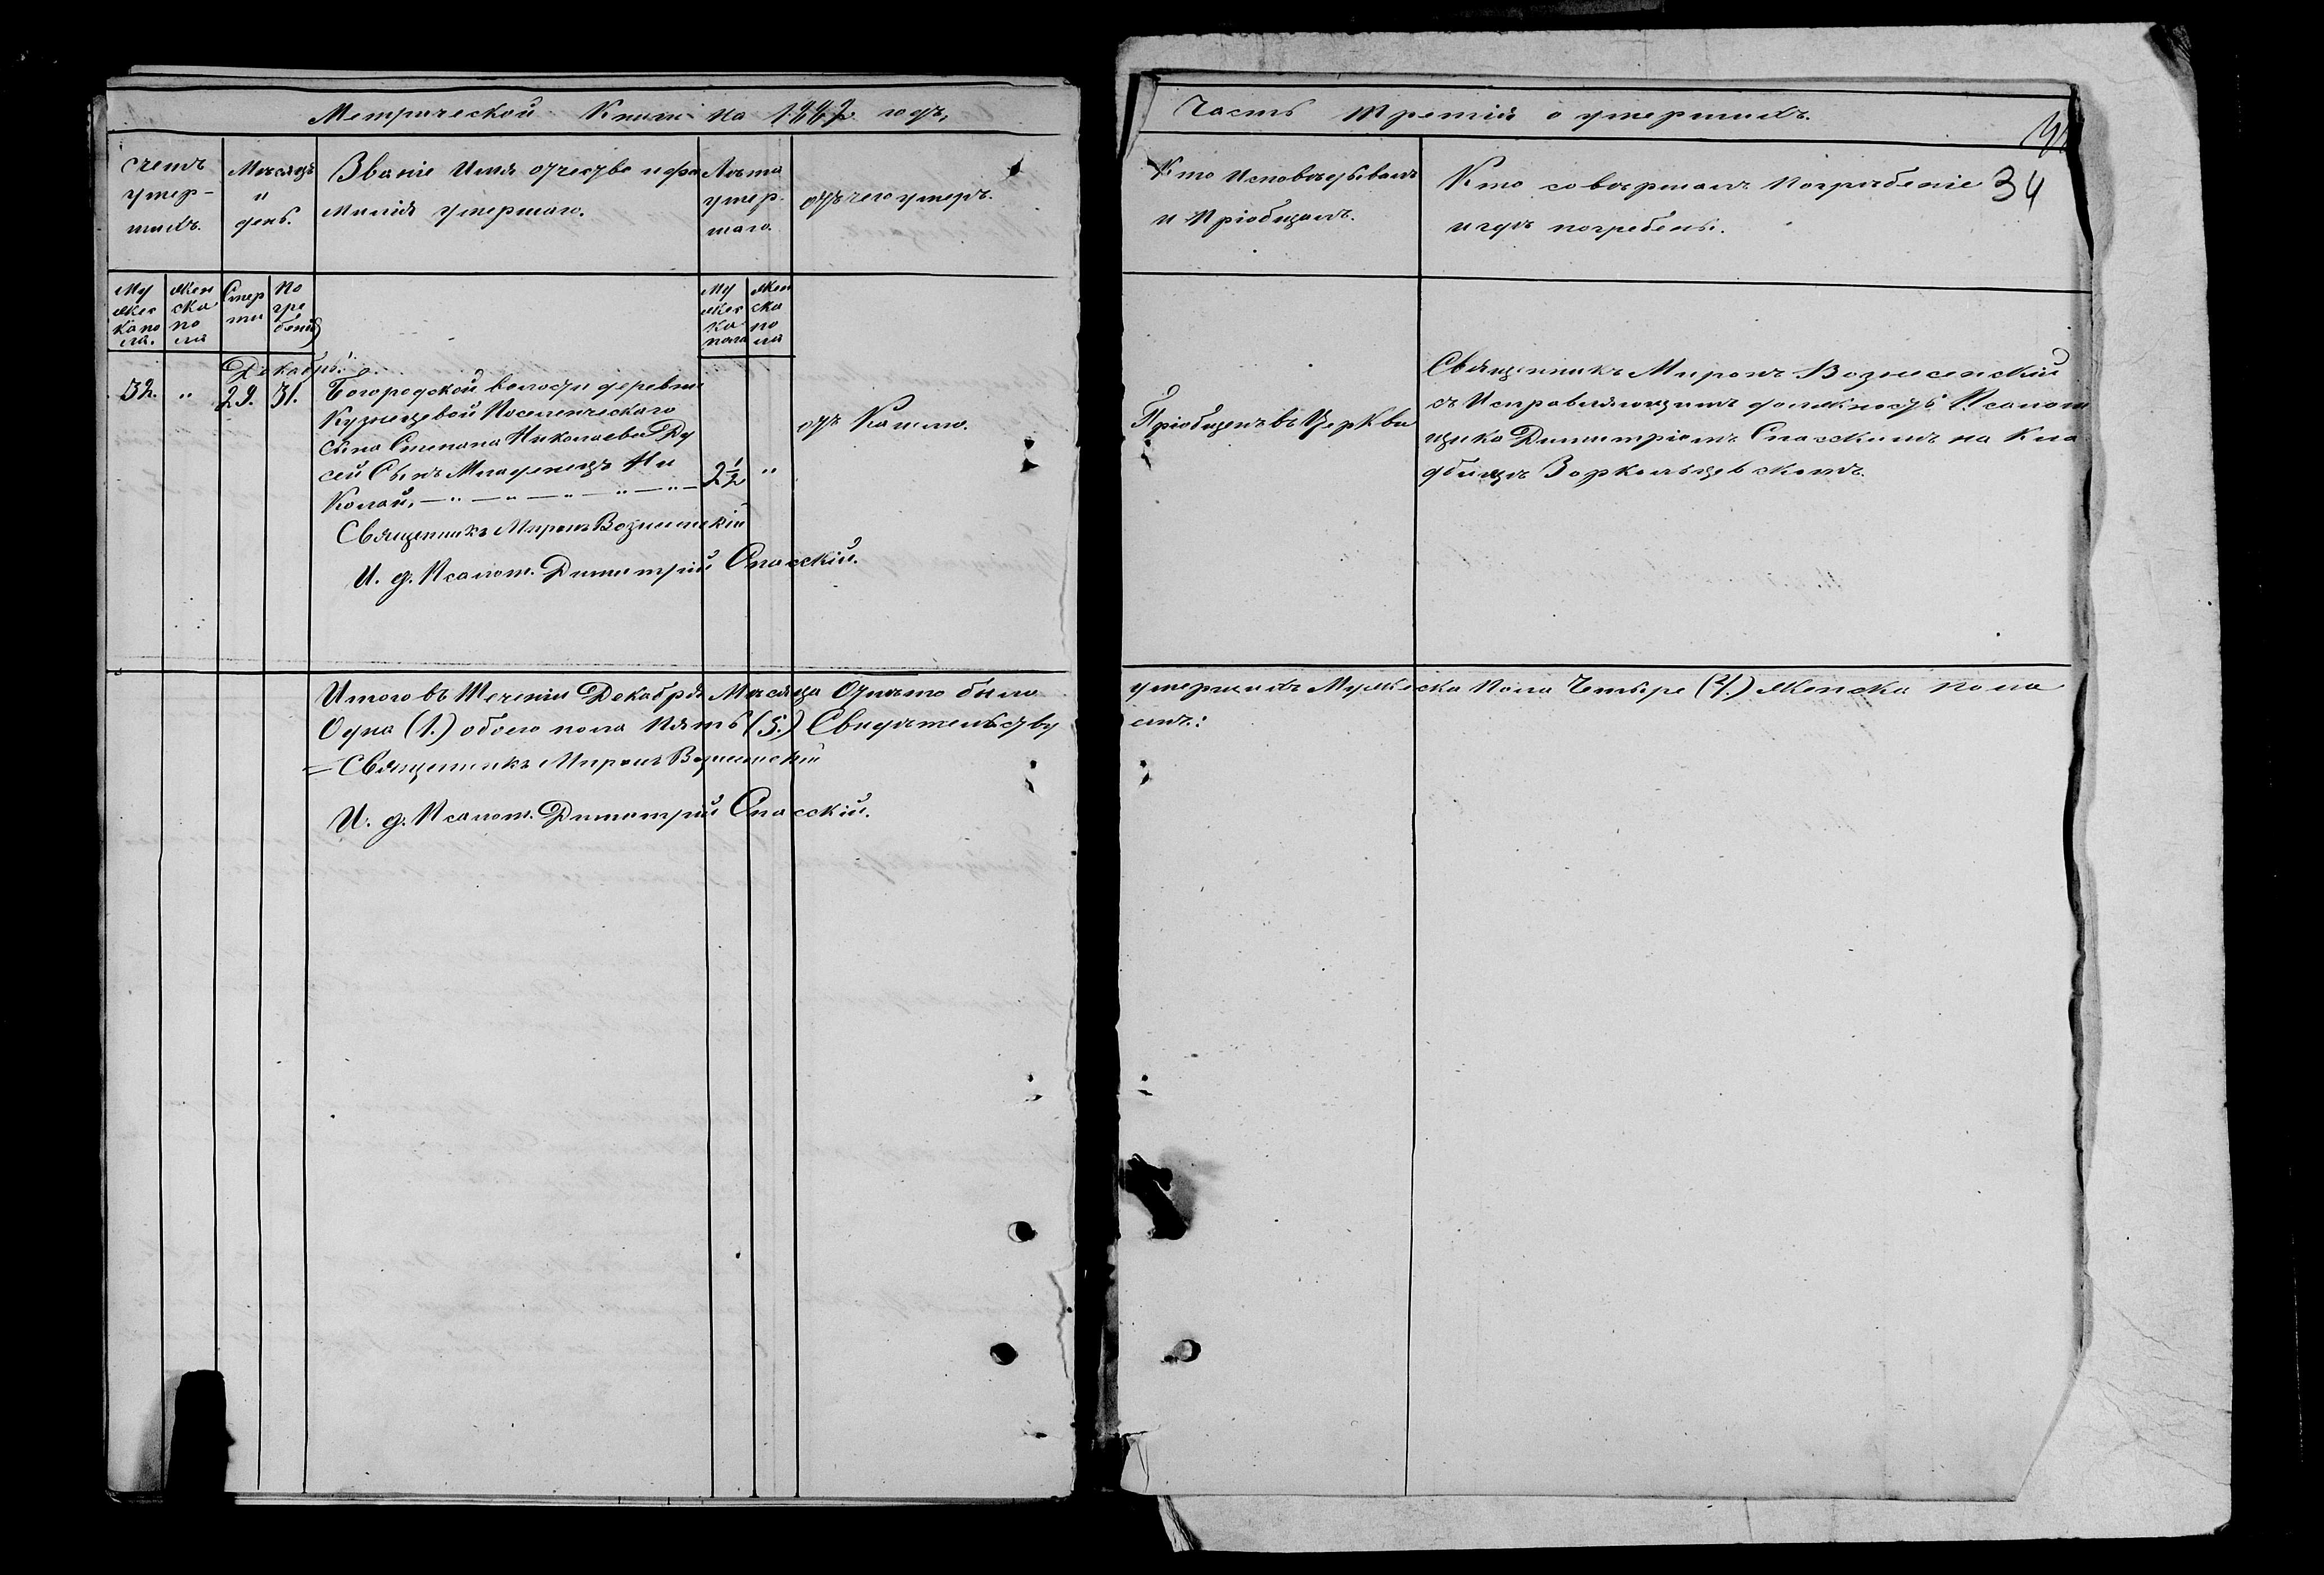 Метрической Книги на 1882 годъ,
Счетъ умер-шихъ.
Мѣсяцъ и день.
Званіе Имя отчество и фамилія умершаго.
Лѣта умер-шаго.
отъ чего умеръ.
Мужескапола.
Женска пола
Смерти
Погребенія
Мужеска пола
Женска пола
Декабрь.
32. " 29. 31. Богородской волости деревни
Кузнецовой Поселенческаго
сына Степана Николаева Ру
сей Сынъ Младенецъ Ни
колай, — " — " — " — " — " — 2½ "
отъ Кашлю.
Священникъ Миронъ Вознесенскій
И. д. Псалом. Димитрій Спасскій.
Итого въ Теченіи Декабря Мѣсяца
Одна (1.) обоего пола Пять (5.) Свидѣтельству
Священникъ Миронъ Вознесенскій
И. д. Псалом. Димитрій Спасскій.
Часть Третій о умершихъ.
Кто Исповѣдывалъ
и Пріобщалъ.
Кто совершалъ Погребеніе
и гдѣ погребены.
34
Пріобщенъ въ Церкви
Священникъ Миронъ Вознесенскій
съ Исправляющимъ должность Псалом
щика Димитріемъ Спасскимъ на Кла
дбищѣ Зоркальцевскомъ.
умершихъ Мужеска Пола Четыре (4.) Женска пола
емъ: